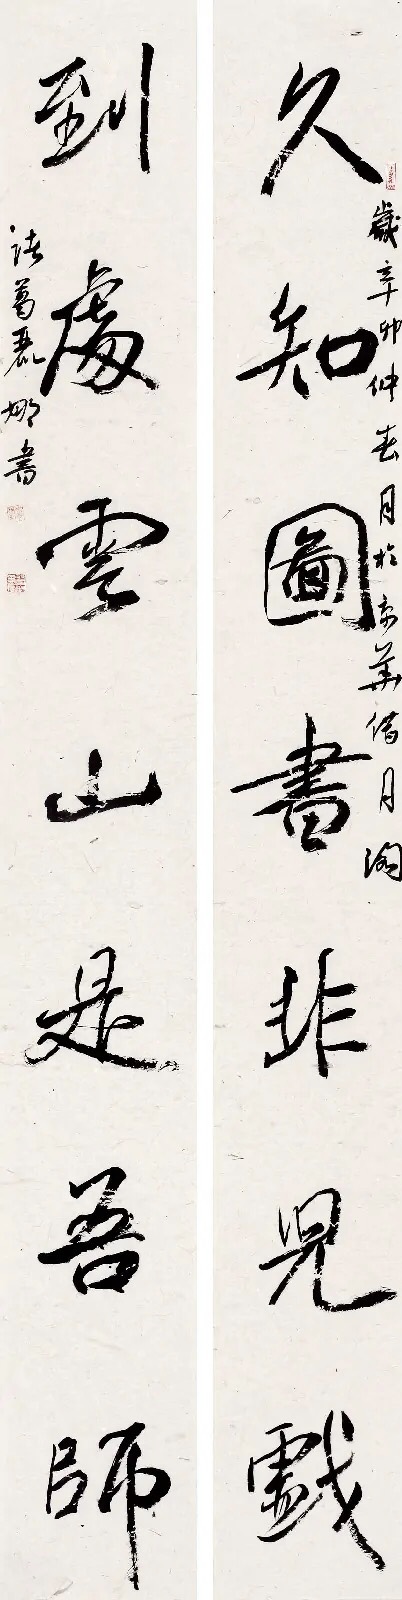 久知圖書非兒戲
歲辛卯仲春月於京華借月閣
到處雲山是吾師
諸葛麗娜書